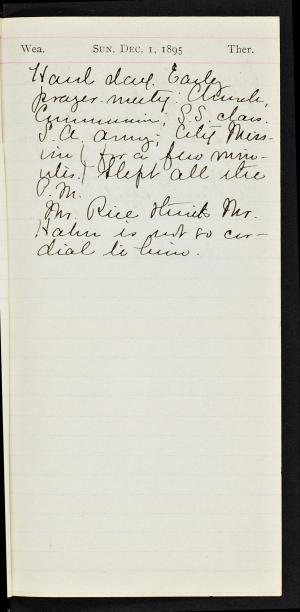 Wea. SUN. DEC. 1, 1895 Ther.
Hard day. Early
prayer meety: Church,
Communion, S.S. class.
S.A. army; City Miss-
ion (for a few min-
utes.) Slept all the
P.M.
Mr. Rice thinks Mr.
Hahn is not so cor-
dial to him.